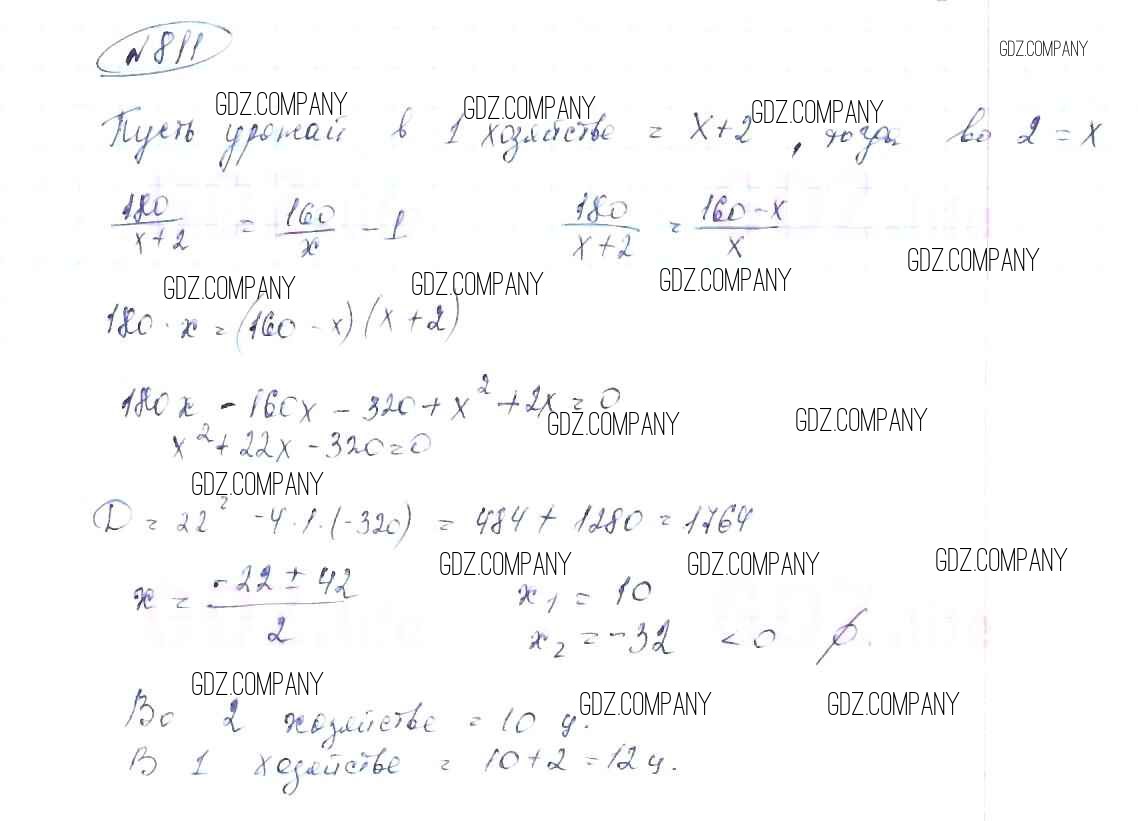 № 811
GDZ.COMPANY
GDZ.COMPANY GDZ.COMPANY GDZ.COMPANY
Пусть урожай в 1 хозяйстве = x+2, тогда во 2 = x
180/(x+2) = 160/x - 1 180/(x+2) = (160-x)/x
GDZ.COMPANY
GDZ.COMPANY GDZ.COMPANY GDZ.COMPANY
180·x = (160-x)(x+2)
180x - 160x - 320 + x² + 2x = 0
GDZ.COMPANY GDZ.COMPANY
x² + 22x - 320 = 0
GDZ.COMPANY
D = 22² - 4·1·(-320) = 484 + 1280 = 1764
GDZ.COMPANY GDZ.COMPANY GDZ.COMPANY
x = (-22 ± 42)/2 x₁ = 10
x₂ = -32 < 0 ∅.
GDZ.COMPANY GDZ.COMPANY GDZ.COMPANY
Во 2 хозяйстве = 10 ц.
В 1 хозяйстве = 10+2 = 12 ц.